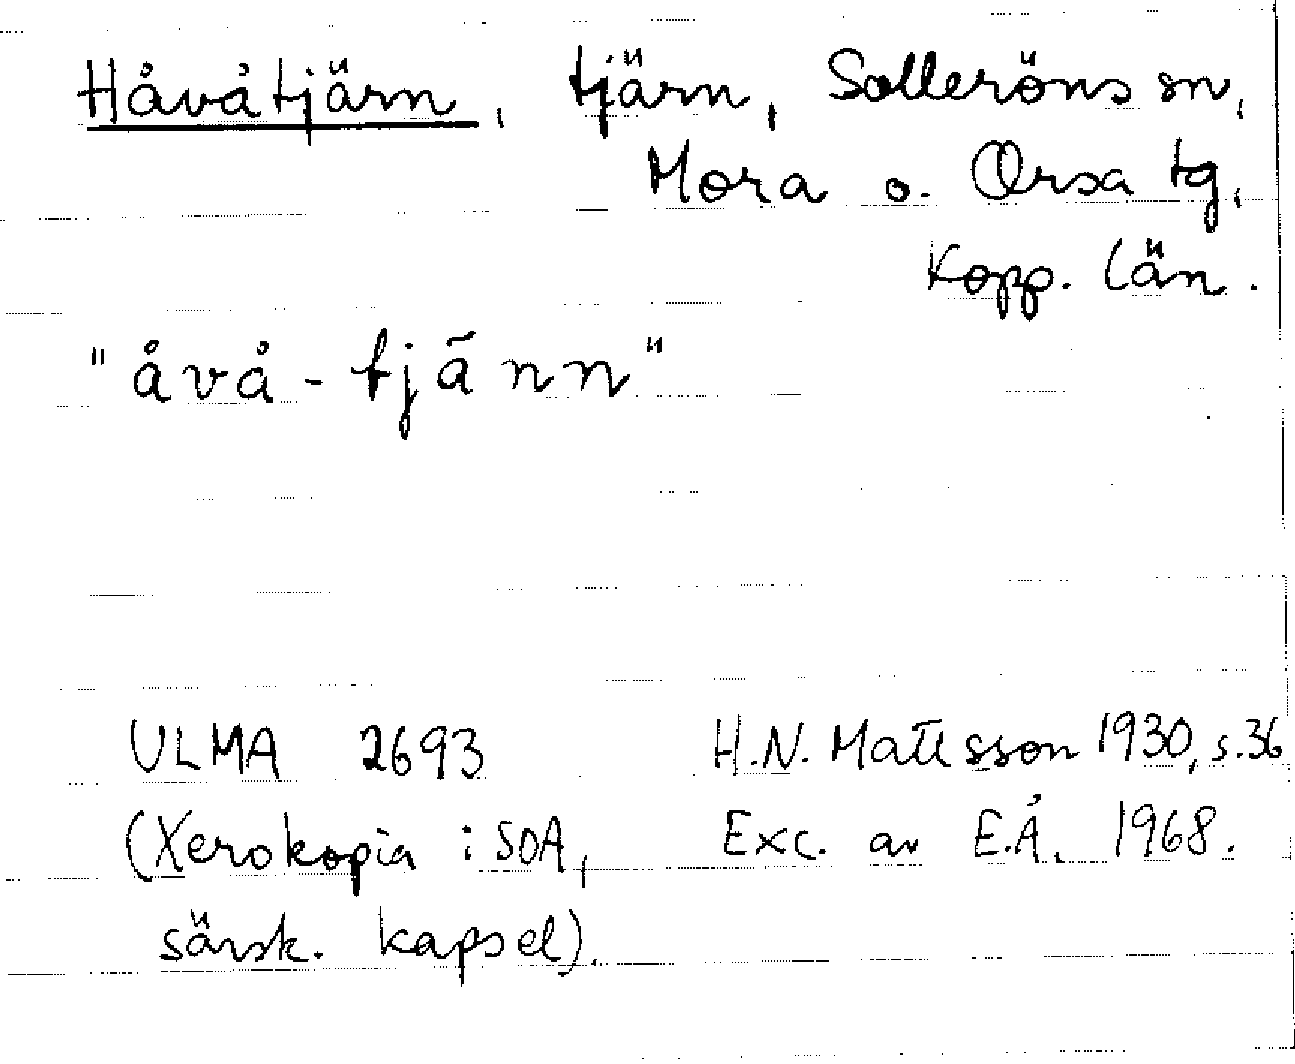 Håvåtjärn, tjärn, Solleröns sn,
Mora o. Orsa tg,
Kopp. län.
"åvå-tjãnn"
ULMA 2693 H.N. Mattsson 1930, s.36
(Xerokopia i SOA, Exc. av E.Å. 1968.
särsk. kapsel).